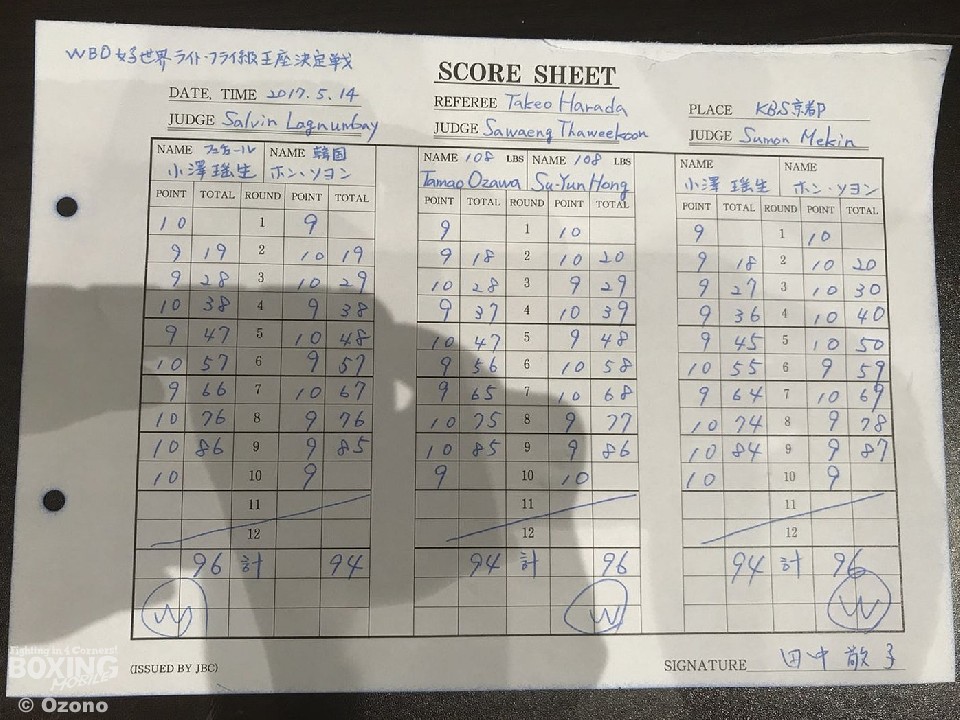 WBO女子世界ライト・フライ級王座決定戦
SCORE SHEET
DATE, TIME 2017.5.14
REFEREE Takeo Harada
PLACE KBS京都
JUDGE Salvin Lagnumbay
JUDGE Sawaeng Thaweekoon
JUDGE Sumon Mekin
NAME フュチュール NAME 韓国
小澤瑶生 ホン・ソヨン
NAME 108 LBS NAME 108 LBS
Tamao Ozawa Su-Yun Hong
NAME NAME
小澤 瑶生 ホン・ソヨン
POINT TOTAL ROUND POINT TOTAL POINT TOTAL ROUND POINT TOTAL POINT TOTAL ROUND POINT TOTAL
10 1 9 9 1 10 9 1 10
9 19 2 10 19 9 18 2 10 20 9 18 2 10 20
9 28 3 10 29 10 28 3 9 29 9 27 3 10 30
10 38 4 9 38 9 37 4 10 39 9 36 4 10 40
9 47 5 10 48 10 47 5 9 48 9 45 5 10 50
10 57 6 9 57 9 56 6 10 58 10 55 6 9 59
9 66 7 10 67 9 65 7 10 68 9 64 7 10 69
10 76 8 9 76 10 75 8 9 77 10 74 8 9 78
10 86 9 9 85 10 85 9 9 86 10 84 9 9 87
10 10 9 9 10 10 10 10 9
11 11 11
12 12 12
96 計 94 94 計 96 94 計 96
W W W
(ISSUED BY JBC)
SIGNATURE 田中 敬子
Fighting in 4 Corners!
BOXING
MOBILE
© Ozono